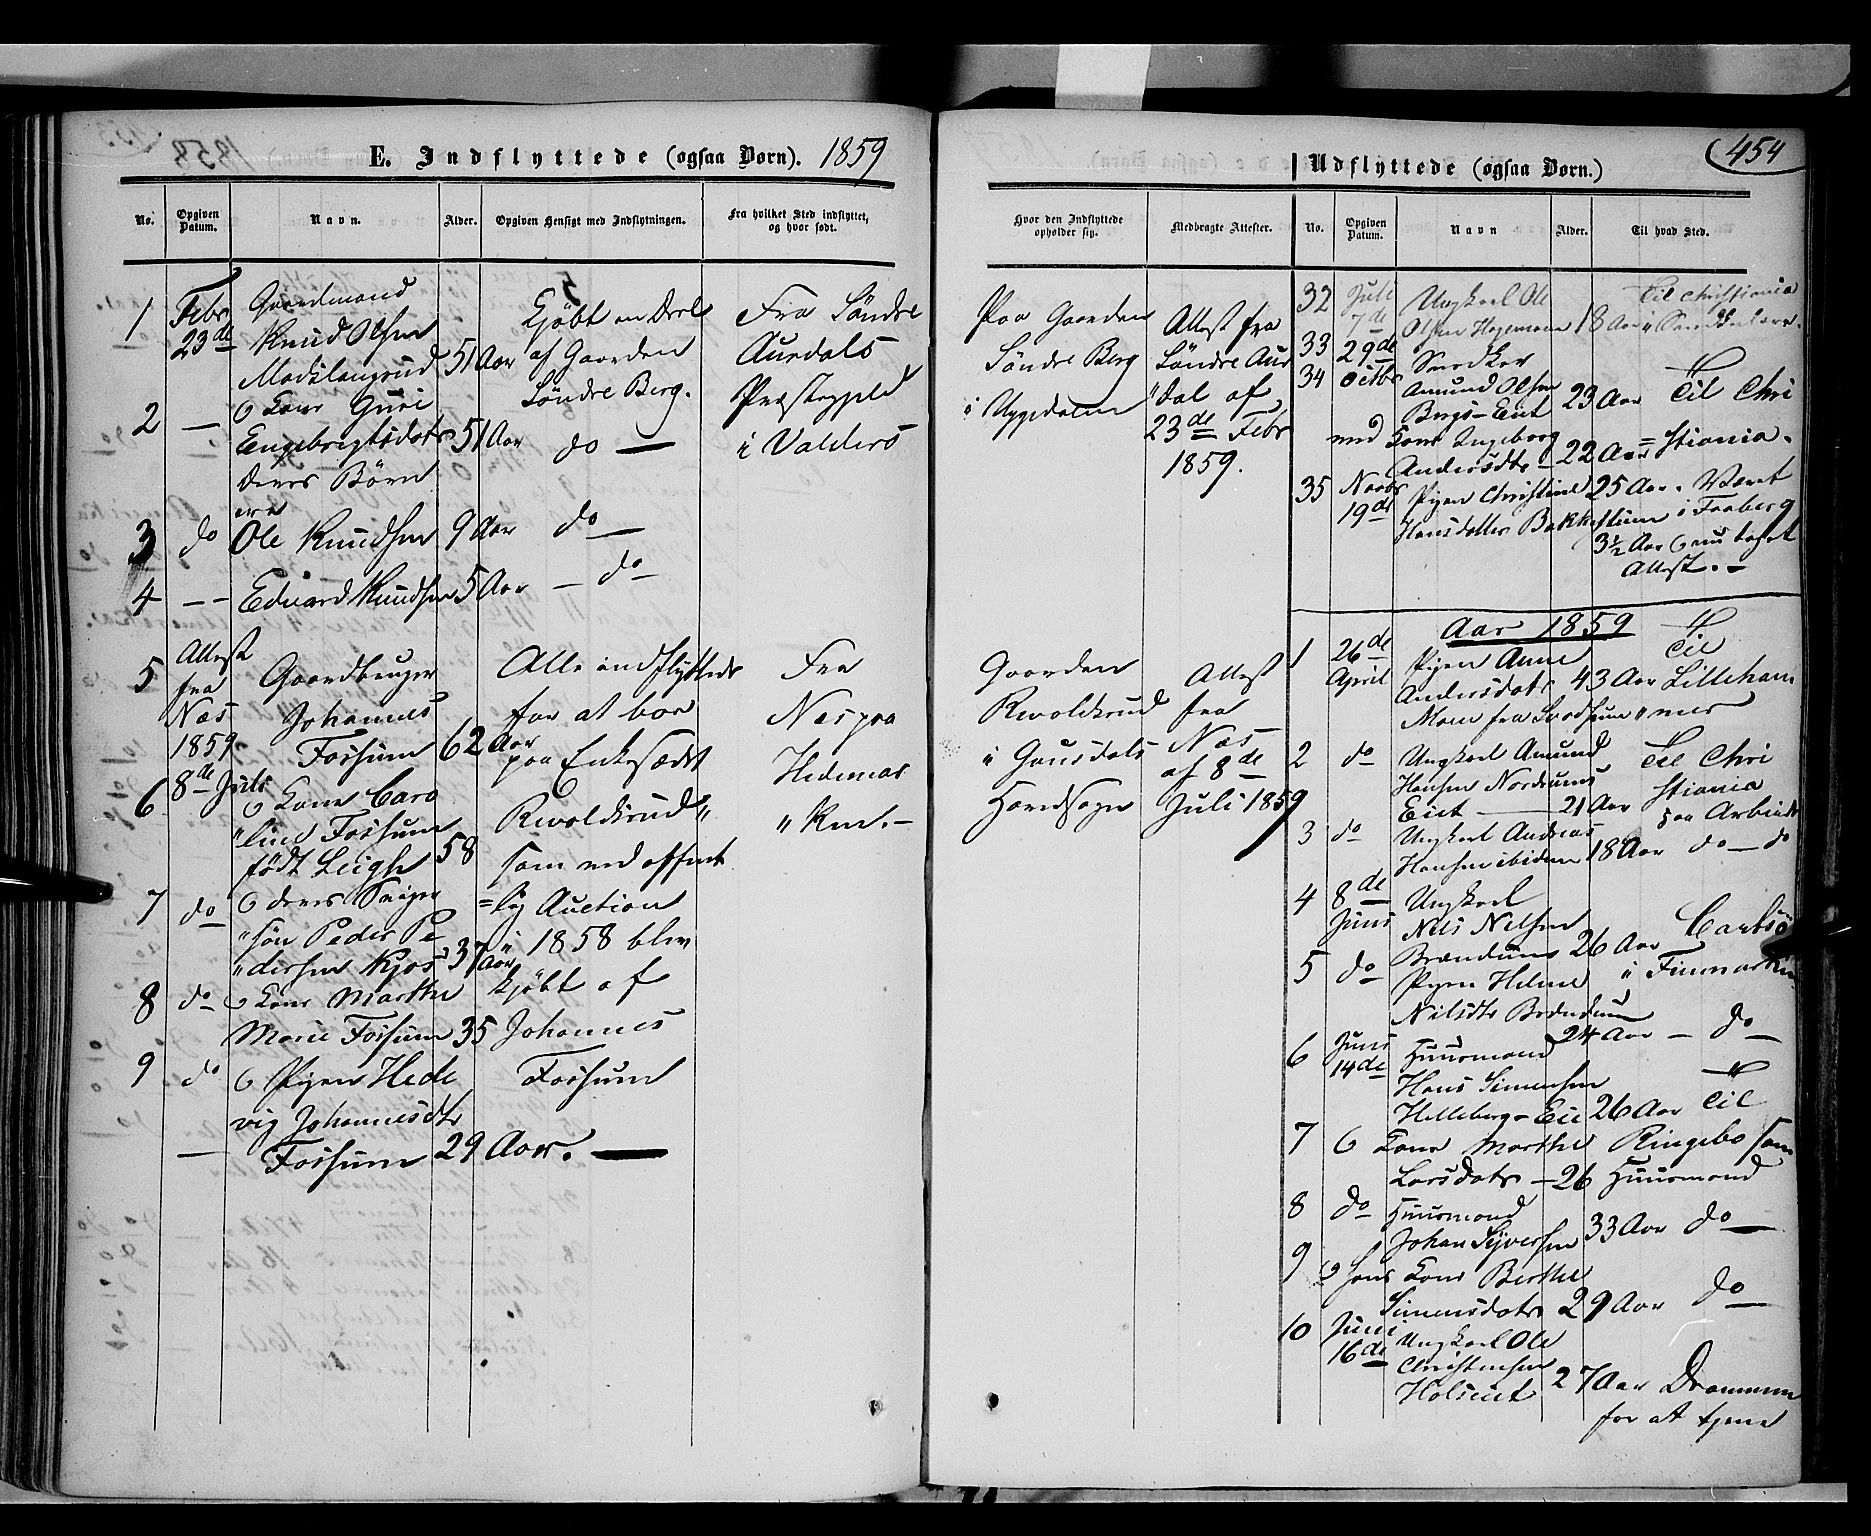 E. Indflyttede (ogsaa Børn). 1859
No. Opgiven Datum. Navn. Alder. Opgiven Hensigt med Indflytningen. Fra hvilket Sted indflyttet, og hvor født.
1 Febr 23de Gaardmand
Knud Olsen
51 Aar
Kjøbt en Deel
af Gaarden
Søndre Berg.
Fra Søndre
Aurdals
Præstegjeld
i Valders
2 — Kone Guri
Engebrigtsdatr 51 Aar do —
deres Børn
ere
3 do Ole Knudsen 9 Aar do —
4 -- Eduard Knudsen 5 Aar — do
5 Attest
fra
Næs
1859
8de Juli
Gaardbruger
Johannes
Fossum 62 Aar
Alle indflyttede
for at boe
paa Enkesædet
Rwoldsrud
som ved offent
=lig Auction
i 1858 blev
kjøbt af
Johannes
Fossum
Fra
Næs paa
Hedemar
"ken.-
6 Kone Caro
"line Fossum
født Leigh 58
7 do deres Sviger
"søn Peder Pe
"dersen Kjos 37 Aar
8 do Kone Marthe
Marie Fossum 35
9 do Pigen Hede
vig Johannesdtr
— Fossum 29 Aar. —
454
Hvor den Indflyttede opholder sig. Medbragte Attester.
Paa Gaarden
Søndre Berg
i Uggedalen
Attest fra
Søndre Aur
"dal af
23de Febr
1859.
Gaarden
Rwoldsrud
i Gausdals
Hovedsogn
Attest
fra
Næs
af 8de
Juli 1859
Udflyttede (ogsaa Børn.)
No. Opgiven Datum. Navn Alder. Til hvad Sted.
32 Juli 7de Ungkarl Ole
Olsen Hagemoen 18 Aar Til Christiania
33 29de
34 Octbr Snedker
Amund Olsen
Bergs-Eiet 23 Aar Til Chri
med Kone Ingeborg
Andersdtr - 22 Aar =stiania.
35 Novbr 19de Pigen Christine 25 Aar. Været
Hansdatter Bakkestuen i Faaberg
3½ Aar
Attest. -
Aar 1859
1 26de April Pigen Anne
Andersdatr 43 Aar Til Lilleham
Moen fra "mer
2 do Ungkarl Amund
Hansen Nordrums
Eiet — 21 Aar Til Chri
stiania
paa Arbeide
3 do Ungkarl Andreas
Hansen ibidem 18 Aar do — do
4 8de Juni Ungkarl
Nils Nilsen
Brændum 26 Aar
5 do Pigen Helene i Finmarken
Nilsdtr Brændum
24 Aar — do —
6 Juni 14de Huusmand
Hans Simensen
Helleberg-Eie 26 Aar Til
7 Kone Marthe Ringebo som
Larsdatr - 26 Huusmand
8 do Huusmand
Johan Syversen 33 Aar do —
9 hans Kone Berthe
Simensdatr 29 Aar do —
10 Juni 16de Ungkarl Ole
Christensen
Holseiet 27 Aar Drammen
for at tjene